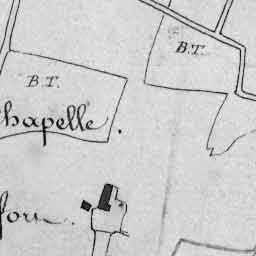 B.T.
B.T.
hapelle.
four.